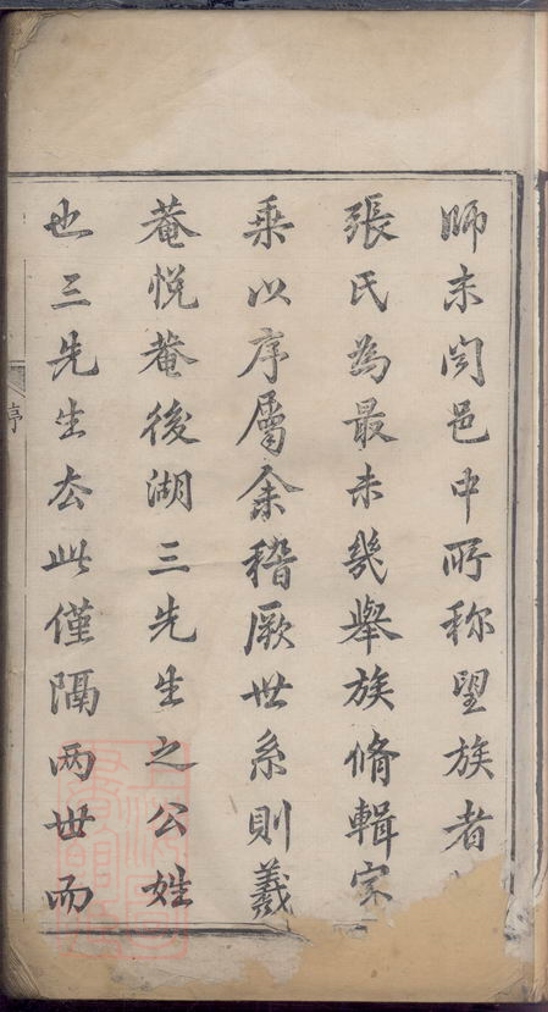 師来閱邑中所称望族者
張氏為最未幾舉族脩輯宗
乗以序屬余稽厥世系則羲
菴悦菴後湖三先生之公姓
也三先生去此僅隔两世而
序